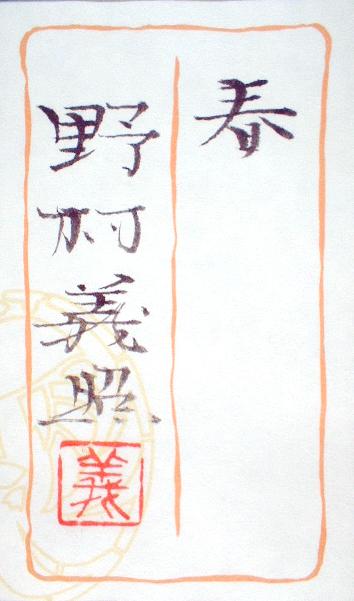 春
野村義照
義